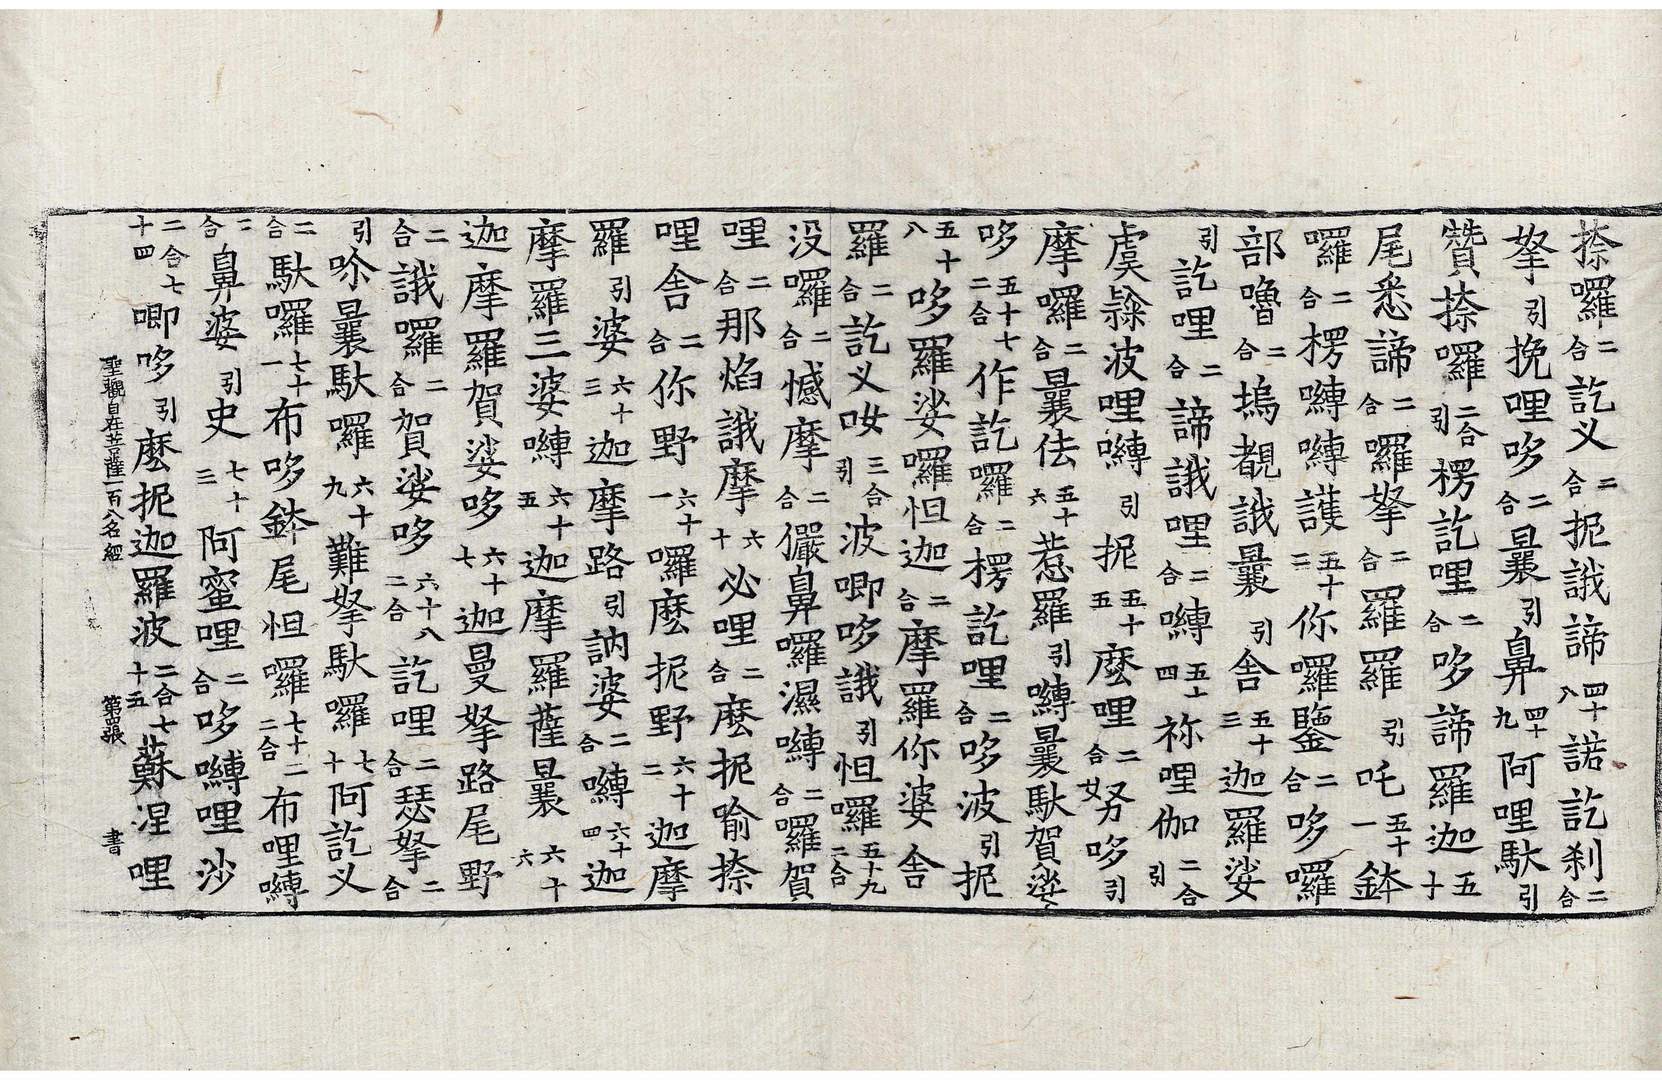 捺囉二合訖义二合抳誐諦四十八諾訖刹二合
拏引挽哩哆二合曩引鼻四十九阿哩馱引
贊捺囉二合引楞訖哩二合哆諦羅迦五十
尾悉諦二合囉拏二合羅羅引吒五十一鉢
囉二合楞嚩嚩護五十二你囉鑒二合哆囉
部嚕二合塢覩誐曩引舍五十三迦羅娑
引訖哩二合諦誐哩二合嚩五十四祢哩伽二合引
虞隸波哩嚩引抳五十五麽哩二合努哆引
摩囉二合曩佉五十六惹羅引嚩曩馱賀娑
哆五十七二合作訖囉二合楞訖哩二合哆波引抳
五十八哆羅娑囉怛迦二合摩羅你婆舍
羅二合訖义吺三合引波唧哆誐引怛囉五十九二合
没囉二合憾摩二合儼鼻囉濕嚩二合羅賀
哩二合那焰誐摩六十必哩二合麽抳喻捺
哩舍二合你野六十一囉麽抳野六十二迦摩
羅引婆六十三迦摩路引訥婆二合嚩六十四迦
摩羅三婆嚩六十五迦摩羅薩曩六十六
迦摩羅賀娑哆六十七迦曼拏路尾野
二合誐囉二合賀娑哆六十八二合訖哩二合瑟拏二合
引吩曩馱囉六十九難拏馱囉七十阿訖义
二合馱囉七十一布哆鉢尾怛囉七十二二合布哩嚩
二合鼻婆引史七十三阿蜜哩二合哆嚩哩沙
二合七十四唧哆引麽抳迦羅波二合七十五蘇涅哩
聖觀自在菩薩一百八名經 第四張 書